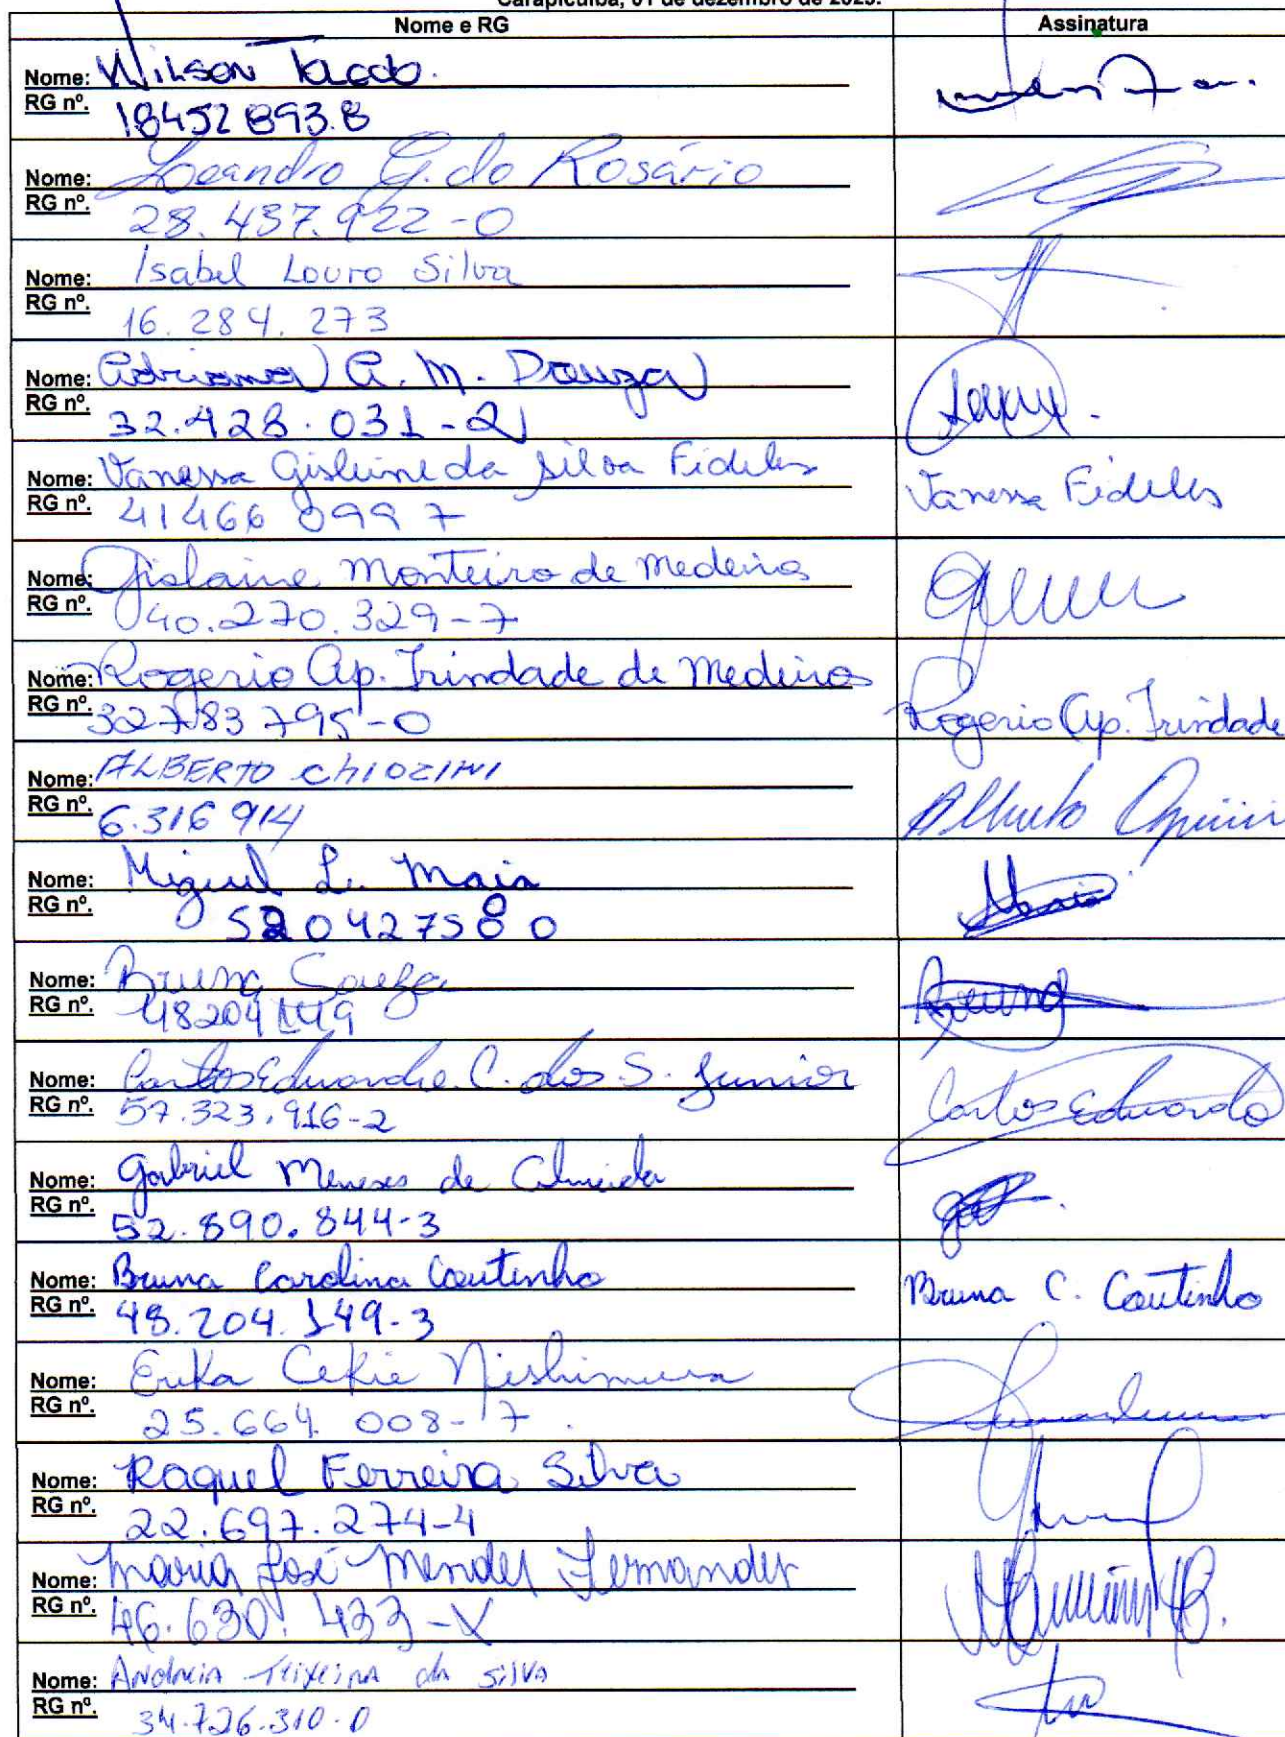 Carapicuíba, 01 de dezembro de 2023.
Nome e RG Assinatura
Nome: Wilson Tacado.
RG nº. 18452893.8
Nome: Leandro G. do Rosário
RG nº. 28.437.922-0
Nome: Isabel Louro Silva
RG nº. 16.284.273
Nome: Adriana A. M. Souza
RG nº. 32.428.031-2
Nome: Vanessa Gisleine da Silva Fideles Vanessa Fideles
RG nº. 41466 099 7
Nome: Gislaine Monteiro de Medeiros
RG nº. 40.270.329-7
Nome: Rogerio Ap. Trindade de Medeiros
RG nº. 32783795-0 Rogerio Ap. Trindade
Nome: ALBERTO CHIOZINI
RG nº. 6.316 914 Alberto
Nome: Miguel L. Maia Maia
RG nº. 520427580
Nome: Bruna Souza Bruna
RG nº. 48204149
Nome: Carlos Eduardo C. dos S. Junior
RG nº. 57.323.916-2 Carlos Eduardo
Nome: Gabriel Meneses de Almeida
RG nº. 52.890.844-3
Nome: Bruna Carolina Coutinho Bruna C. Coutinho
RG nº. 48.204.149-3
Nome: Erika Cekie Nishimura
RG nº. 25.664.008-7.
Nome: Raquel Ferreira Silva
RG nº. 22.697.274-4
Nome: Maria José Mendes Fernandes
RG nº. 46.630.433-X
Nome: Andreia Teixeira da Silva
RG nº. 34.726.310-0